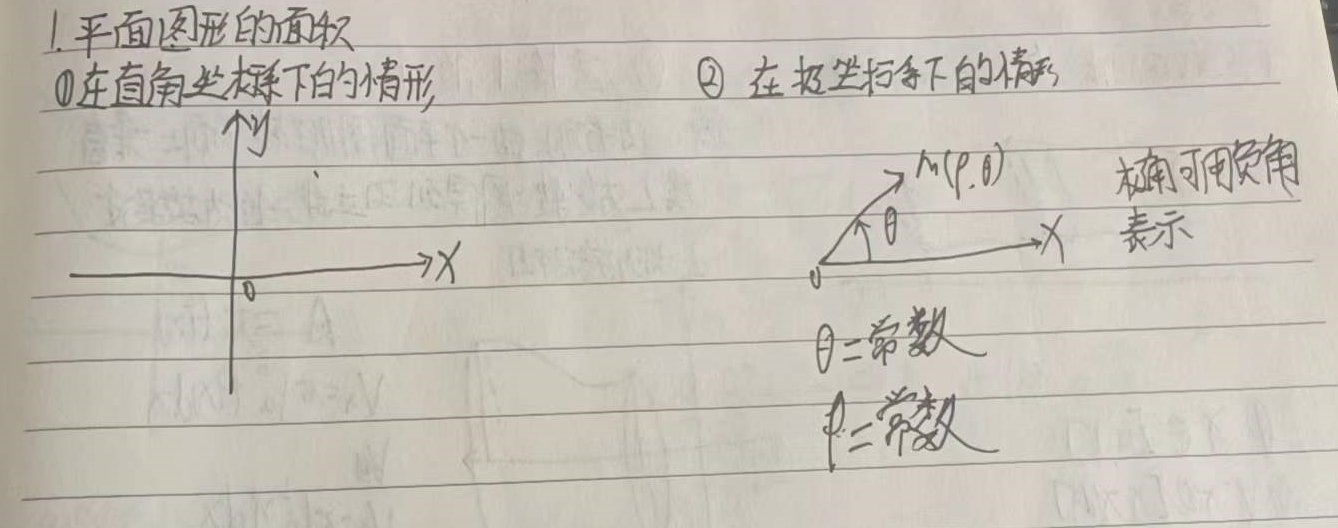 1. 平面图形的面积
①在直角坐标系下的情形
② 在极坐标系下的情形
y
x
0
M(ρ,θ)
θ
x
0
极角可用负角
表示
θ=常数
ρ=常数